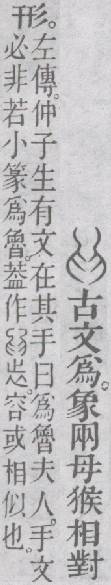 𤓸古文爲。象兩母猴相對
形。
左傳。仲子生有文在其手曰。爲魯夫人。手文
必非若小篆爲魯。葢作𤓸𣥐。容或相似也。